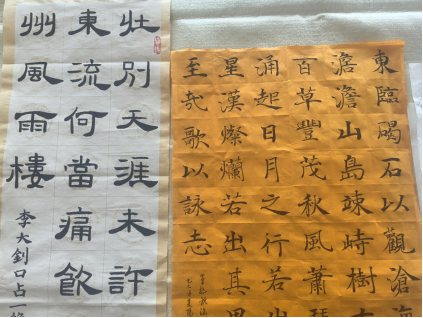 東臨碣石以觀滄海
澹澹山島竦峙樹
百草豐茂秋風蕭瑟
涌起日月之行若出
星漢燦爛若出其里
至哉歌以詠志
壯別天涯未許
東流何當痛飲
州風雨樓
李大釗口占一絶